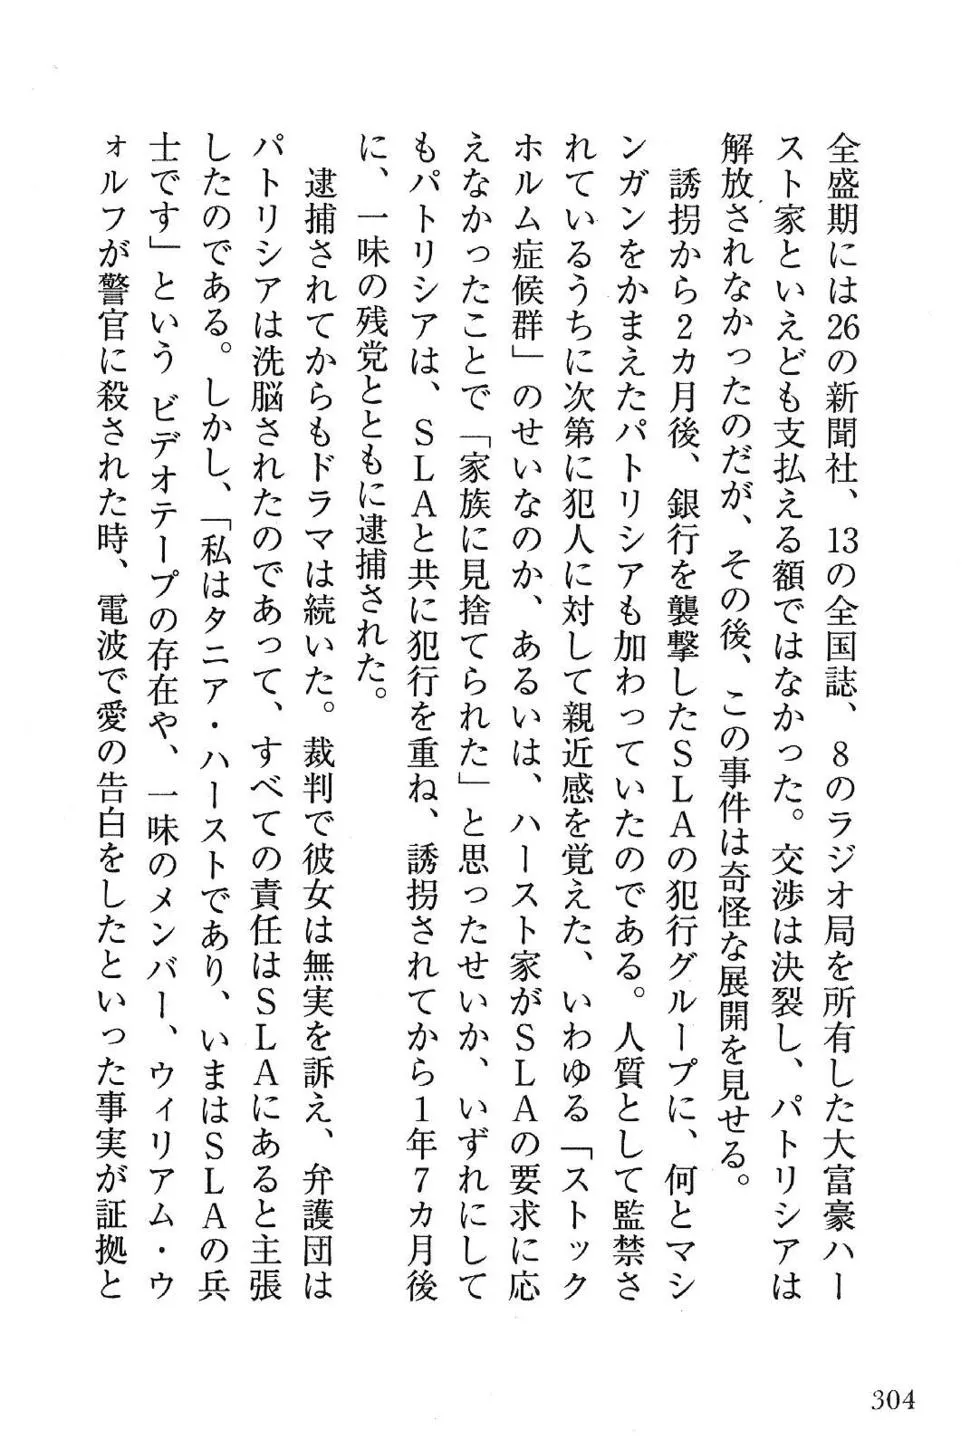 全盛期には26の新聞社、13の全国誌、8のラジオ局を所有した大富豪ハー
スト家といえども支払える額ではなかった。交渉は決裂し、パトリシアは
解放されなかったのだが、その後、この事件は奇怪な展開を見せる。
誘拐から2カ月後、銀行を襲撃したSLAの犯行グループに、何とマシ
ンガンをかまえたパトリシアも加わっていたのである。人質として監禁さ
れているうちに次第に犯人に対して親近感を覚えた、いわゆる「ストック
ホルム症候群」のせいなのか、あるいは、ハースト家がSLAの要求に応
えなかったことで「家族に見捨てられた」と思ったせいか、いずれにして
もパトリシアは、SLAと共に犯行を重ね、誘拐されてから1年7カ月後
に、一味の残党とともに逮捕された。
逮捕されてからもドラマは続いた。裁判で彼女は無実を訴え、弁護団は
パトリシアは洗脳されたのであって、すべての責任はSLAにあると主張
したのである。しかし、「私はタニア・ハーストであり、いまはSLAの兵
士です」というビデオテープの存在や、一味のメンバー、ウィリアム・ウ
ォルフが警官に殺された時、電波で愛の告白をしたといった事実が証拠と
304